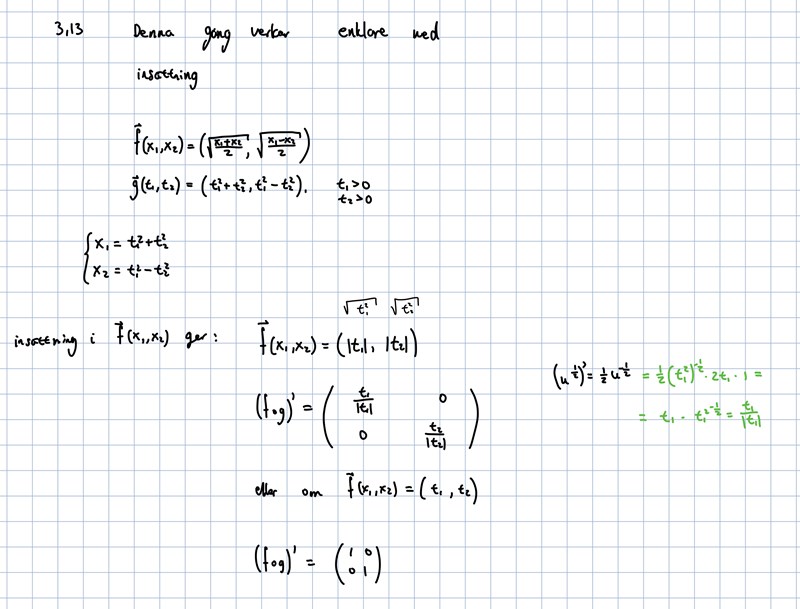 3,13 Denna gång verkar enklare med
insättning
f⃗(x₁,x₂) = (√((x₁+x₂)/2), √((x₁-x₂)/2))
g⃗(t₁,t₂) = (t₁²+t₂², t₁²-t₂²). t₁>0
t₂>0
{ x₁ = t₁²+t₂²
x₂ = t₁²-t₂²
√(t₁²) √(t₂²)
insättning i f⃗(x₁,x₂) ger: f⃗(x₁,x₂) = (|t₁|, |t₂|)
(u^(1/2))' = 1/2 u^(-1/2) = 1/2 (t₁²)^(-1/2) · 2t₁ · 1 =
= t₁ · t₁^(2·-1/2) = t₁/|t₁|
(fog)' = ( t₁/|t₁| 0
0 t₂/|t₂| )
eller om f⃗(x₁,x₂) = (t₁, t₂)
(fog)' = ( 1 0
0 1 )